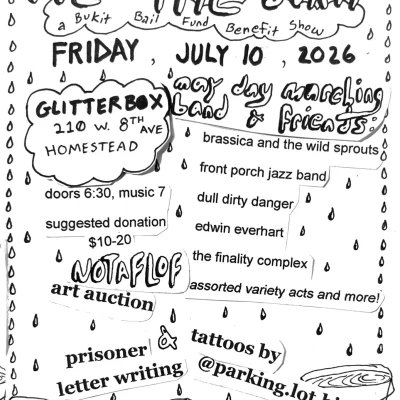 a Bukit Bail Fund Benefit Show
FRIDAY, JULY 10, 2026
GLITTERBOX
210 W. 8TH AVE
HOMESTEAD
may day marching
band & friends:
brassica and the wild sprouts
front porch jazz band
dull dirty danger
edwin everhart
the finality complex
assorted variety acts and more!
doors 6:30, music 7
suggested donation
$10-20
NOTAFLOF
art auction
&
prisoner
letter writing
tattoos by
@parking.lot